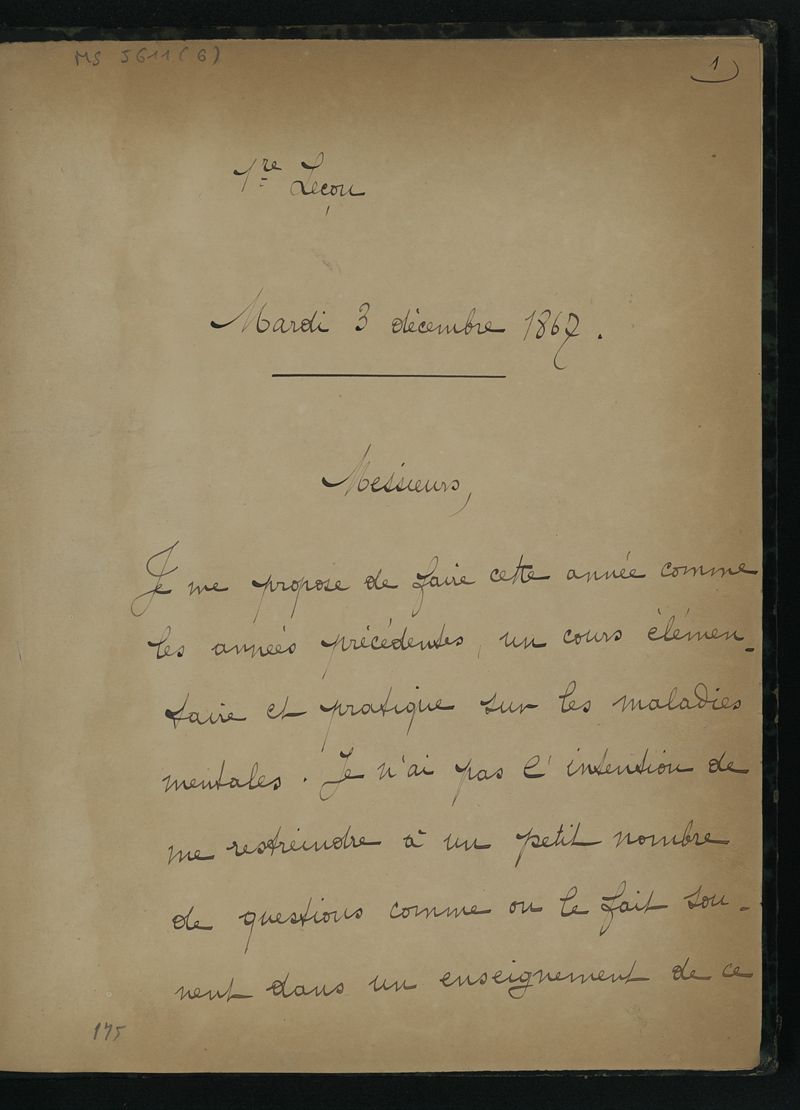 MS 5611(6)
1
1re Leçon
Mardi 3 décembre 1867.
Messieurs,
Je me propose de faire cette année comme
les années précédentes, un cours élémen-
taire et pratique sur les maladies
mentales. Je n'ai pas l'intention de
me restreindre à un petit nombre
de questions comme on le fait sou-
vent dans un enseignement de ce
175